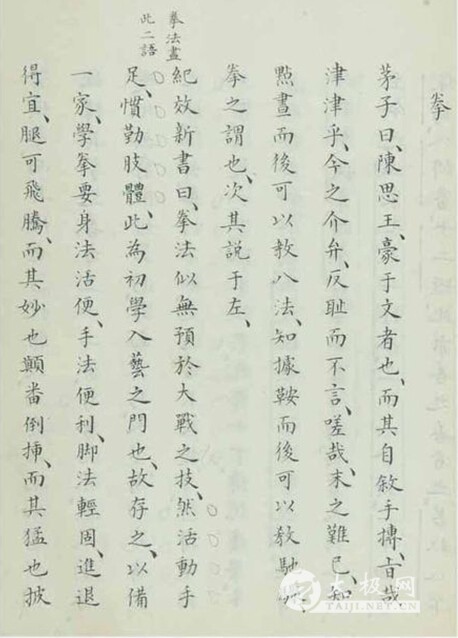 拳
茅子曰、陳思王、豪于文者也、而其自敘手搏、旨哉
津津乎、今之介弁、反耻而不言、嗟哉、末之難已、知
點畫而後可以教八法、知據鞍而後可以教馳
拳之謂也、次其説于左、
紀效新書曰、拳法似無預於大戰之技、然活動手
拳法盡
此二語
足、慣勤肢體、此為初學入藝之門也、故存之、以備
一家、學拳要身法活便、手法便利、脚法輕固、進退
得宜、腿可飛騰、而其妙也顛番倒插、而其猛也披
太极网
TAIJI.NET.CN